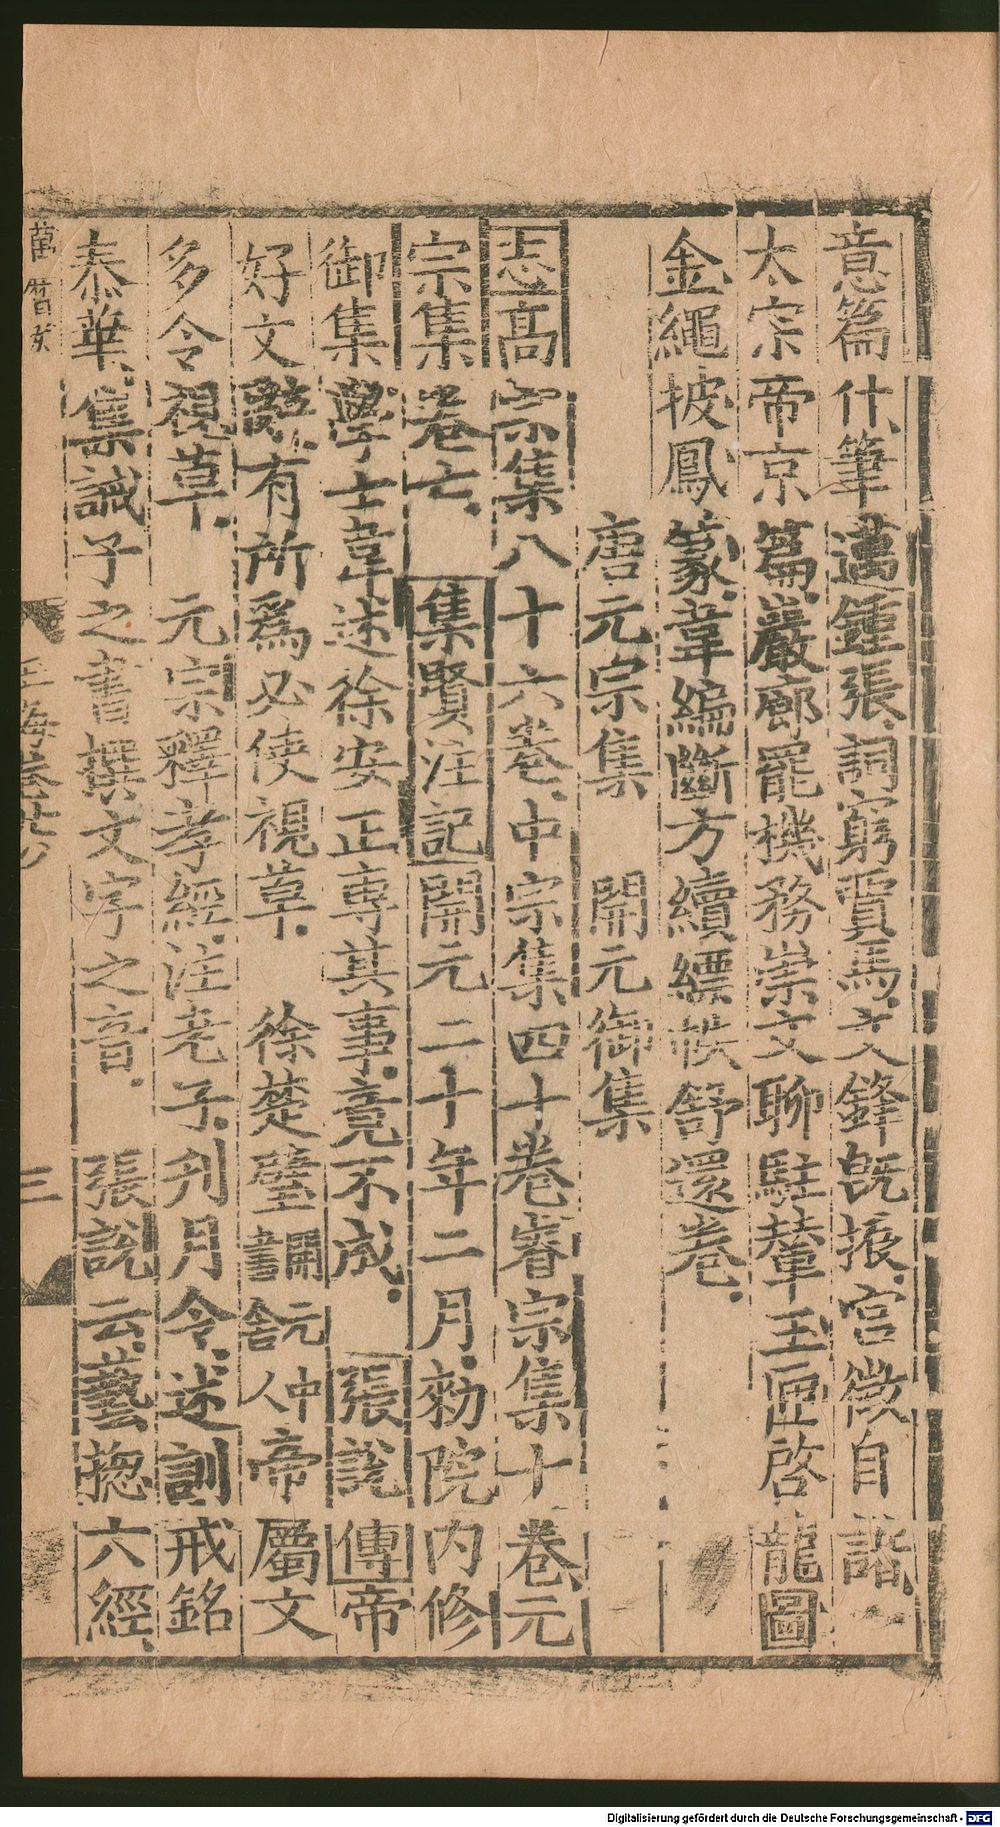 意篇什筆邁鍾張詞窮賈馬文鋒既振宮徵自諧
太宗帝京篇巖廊罷機務崇文聊駐輦玉匣啓龍圖
金繩披鳳篆韋編斷方續縹帙舒還卷
唐元宗集 開元御集
志高宗集八十六卷中宗集四十卷睿宗集十卷元
宗集卷亡 集賢注記開元二十年二月勑院内修
御集學士韋述徐安正専其事竟不成 張說傳帝
好文辭有所爲必使視草 徐楚璧開元中書舍人帝屬文
多令視草 元宗釋孝經注老子刋月令述訓戒銘
泰華集誡子之書撰文字之音 張說云藝揔六經
萬曆
玉海卷 三
Digitalisierung gefördert durch die Deutsche Forschungsgemeinschaft - DFG